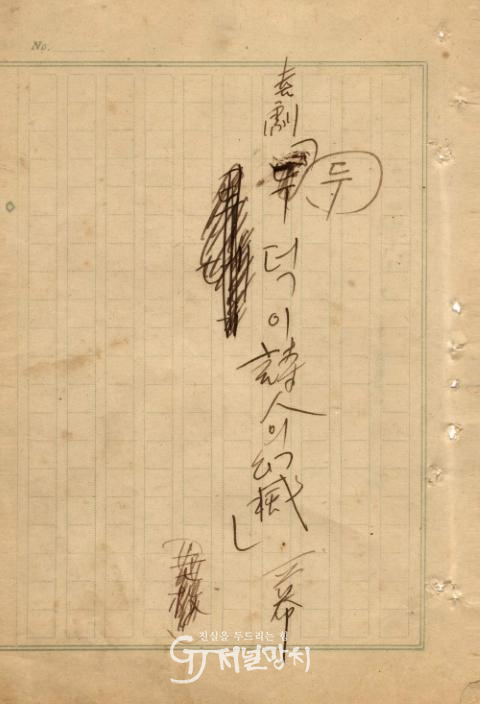 No.
喜劇「두덕이詩人의幻滅」一幕
진실을 두드리는 힘
GJ 저널망치